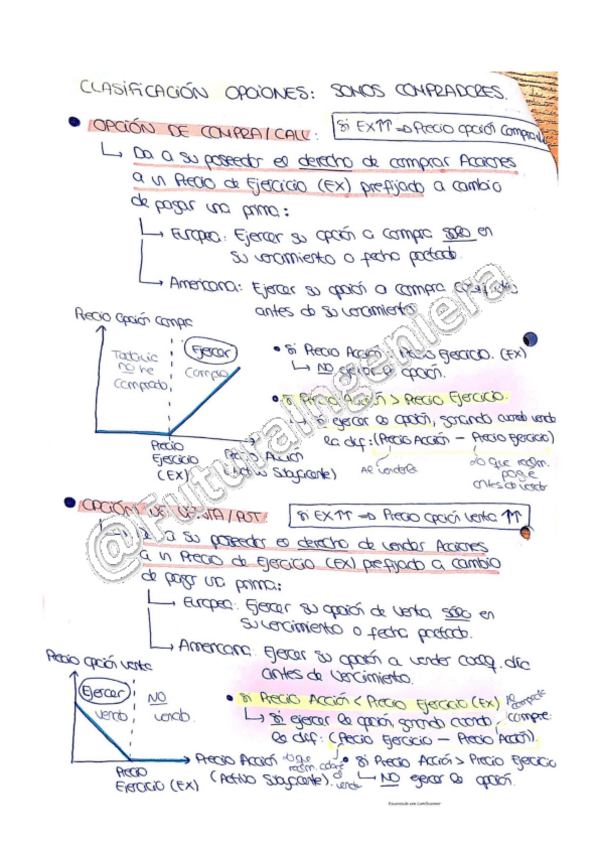 CLASIFICACIÓN OPCIONES: SOMOS COMPRADORES.
• OPCIÓN DE COMPRA/CALL:
Si EX↑↑ → Precio opción compra
↳ Da a su poseedor el derecho de comprar Acciones
a un Precio de Ejercicio (EX) prefijado a cambio
de pagar una prima:
↳ Europea: Ejercer su opción a compra solo en
su vencimiento o fecha pactada.
↳ Americana: Ejercer su opción a compra
antes de su vencimiento
Precio opción compra
Todavía
no he
comprado
Ejercer
Compro
Precio
Ejercicio
(EX)
Precio Acción
(Activo Subyacente)
• Si Precio Acción Precio Ejercicio. (EX)
↳ NO ejercer la opción.
• Si Precio Acción > Precio Ejercicio.
↳ Si ejercer la opción, ganando cuando vendo
la dif: (Precio Acción - Precio Ejercicio)
antes de vender
@Futuraingeniera
• OPCIÓN DE VENTA/PUT
Si EX↑↑ → Precio opción venta ↑↑
↳ Da a su poseedor el derecho de vender Acciones
a un Precio de Ejercicio (EX) prefijado a cambio
de pagar una prima:
↳ Europea: Ejercer su opción de venta solo en
su vencimiento o fecha pactada.
↳ Americana: Ejercer su opción a vender cualq. día
antes de vencimiento.
Precio opción venta
Ejercer
vendo
NO
vendo.
Precio
Ejercicio (EX)
Precio Acción
(Activo Subyacente).
• Si Precio Acción < Precio Ejercicio (EX)
↳ Si ejercer la opción ganando cuando compre
la dif: (Precio Ejercicio - Precio Acción).
• Si Precio Acción > Precio Ejercicio
↳ NO ejercer la opción.
Escaneado con CamScanner